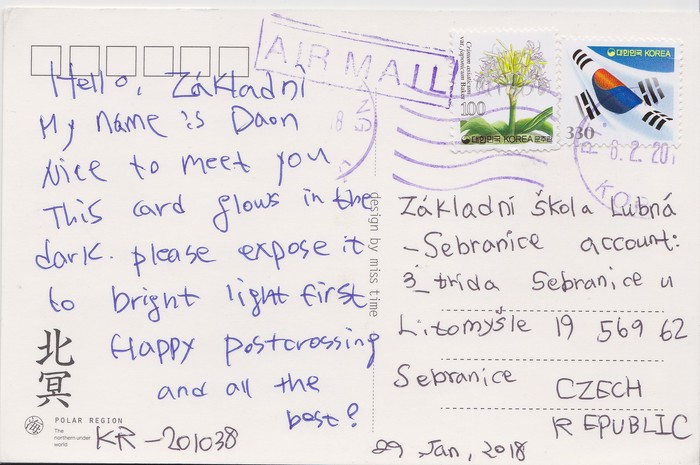 Hello, Základní
My name is Daon
Nice to meet you
This card glows in the
dark. please expose it
to bright light first
Happy Postcrossing
and all the
best?
北冥
POLAR REGION
The
northern under
world
KR-201038
design by miss time
AIR MAIL
100
대한민국 KOREA
대한민국 KOREA
330
8.2.201
Základní škola Lubná
-Sebranice account:
3_třída Sebranice u
Litomyšle 19 569 62
Sebranice CZECH
REPUBLIC
29 Jan, 2018